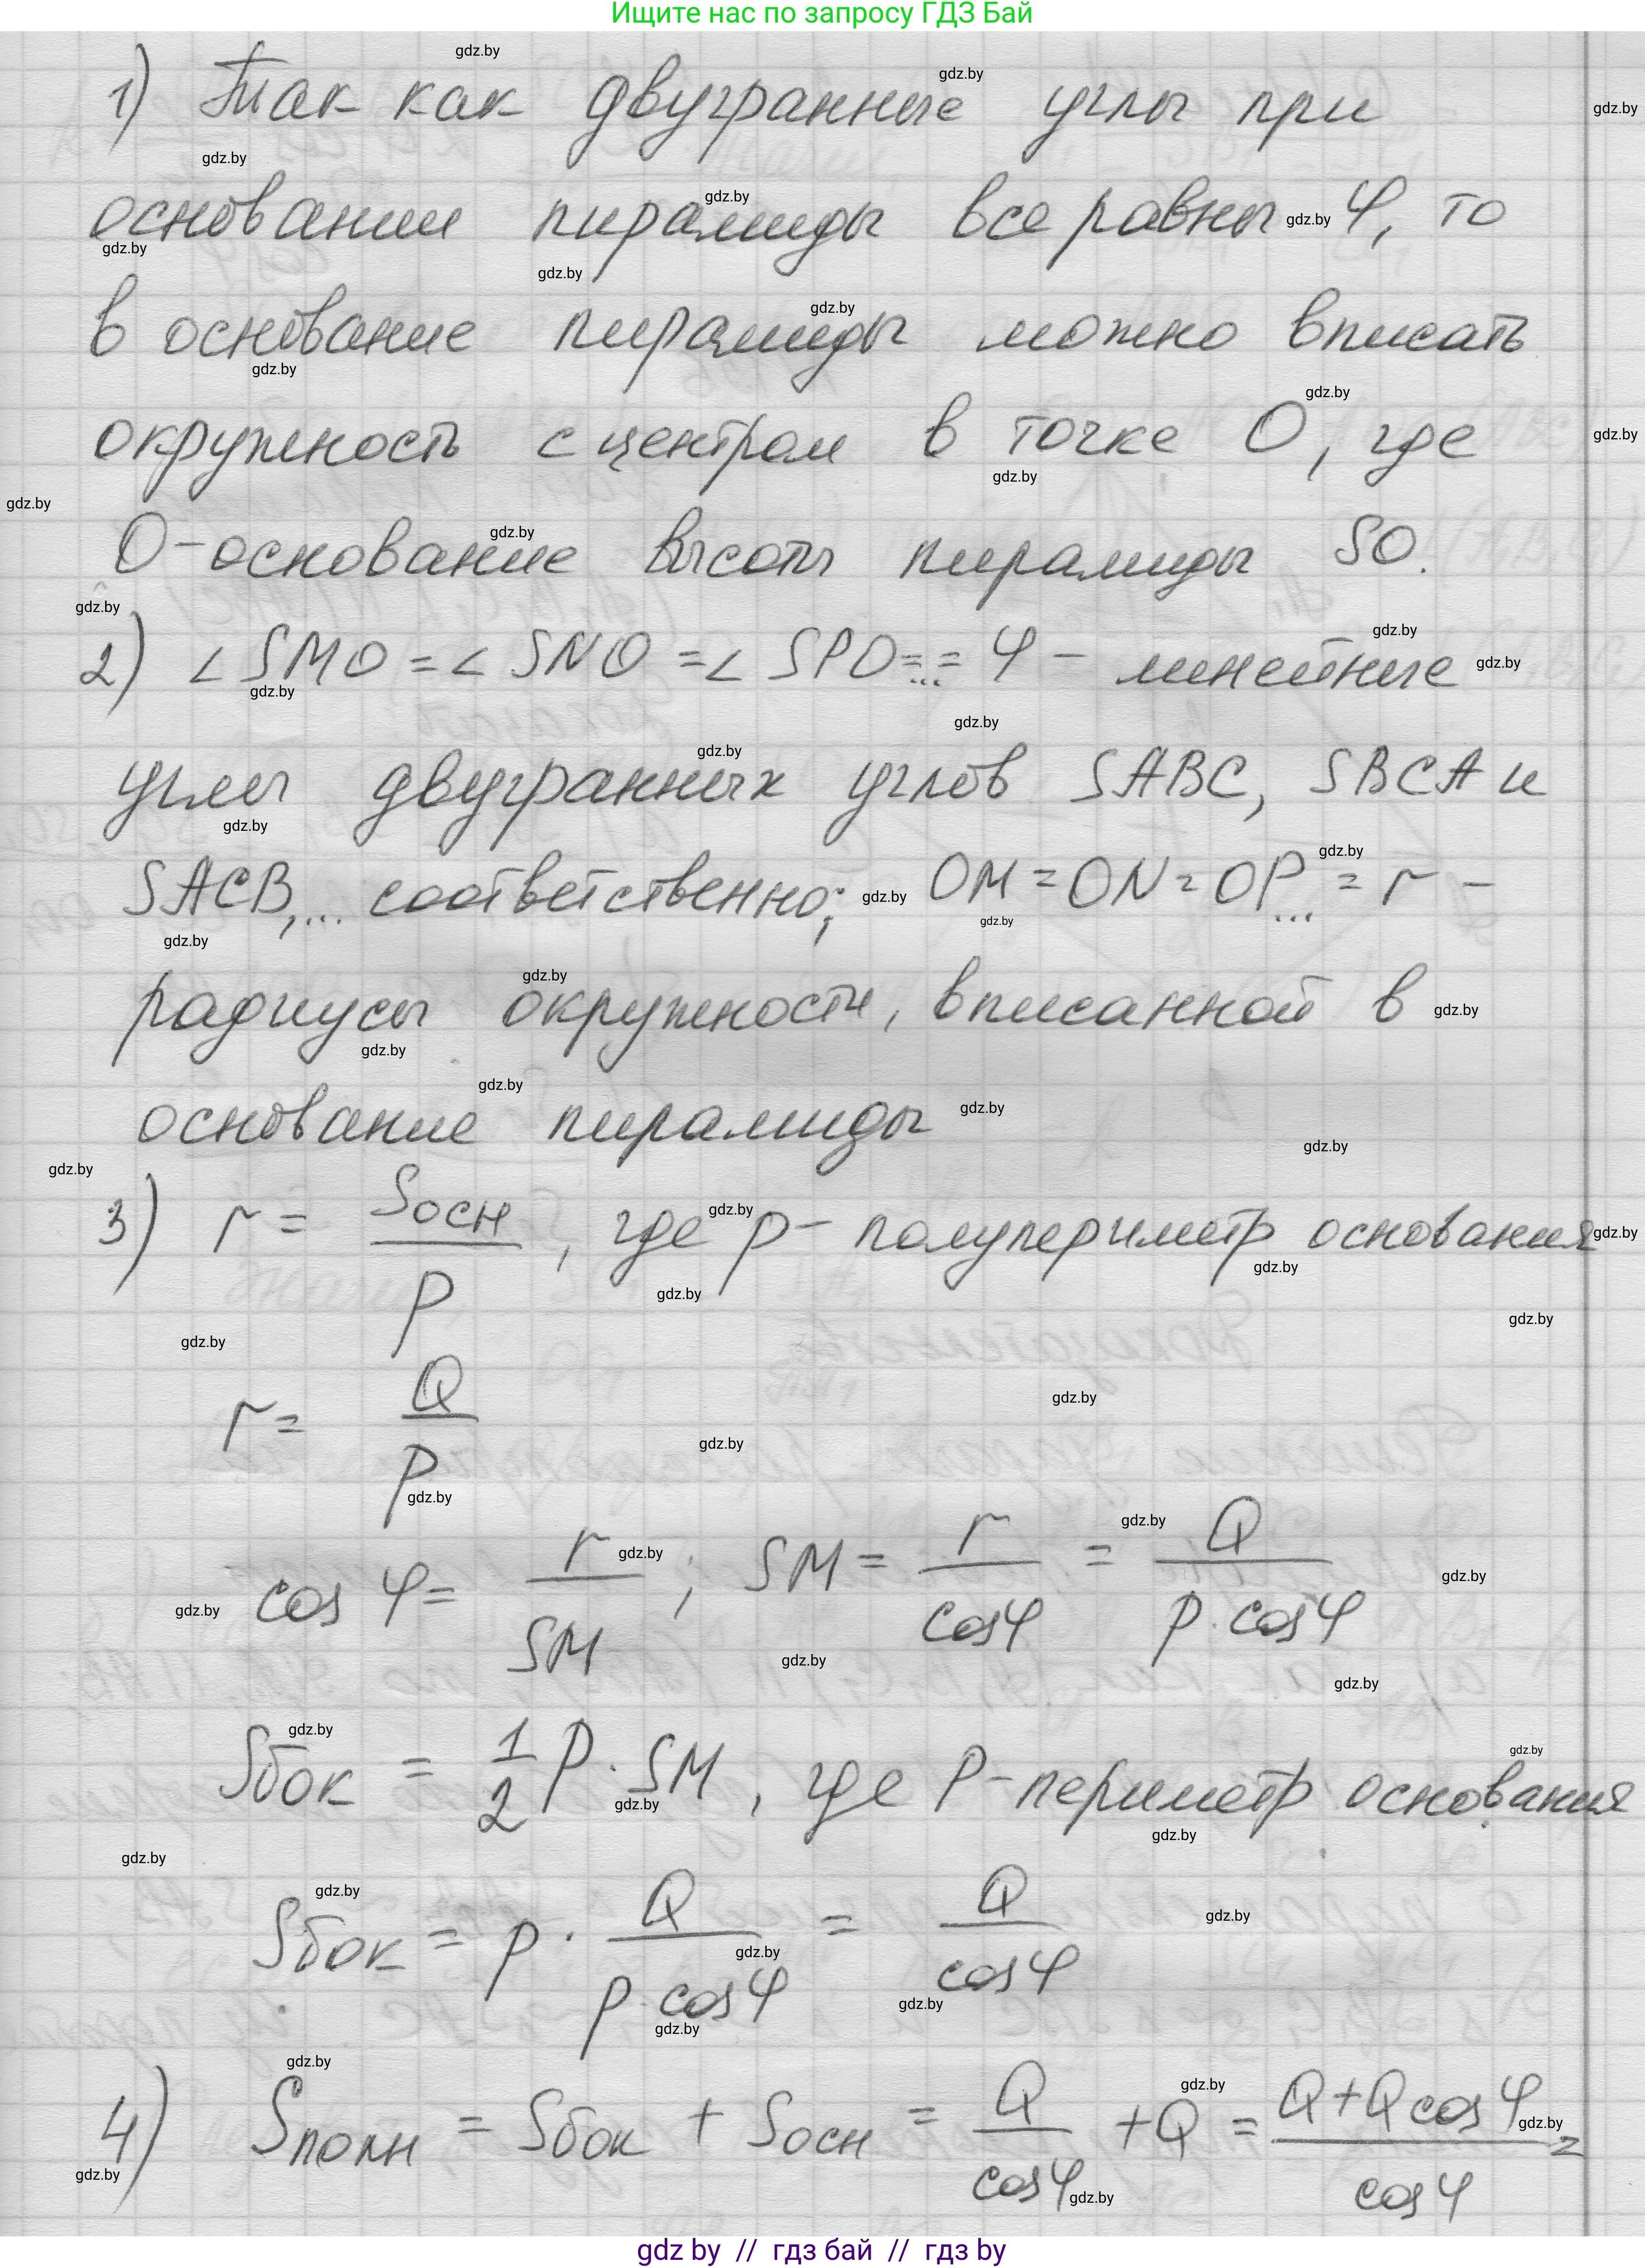 Ищите нас по запросу ГДЗ Бай
1) Так как двугранные углы при
основании пирамиды все равны φ, то
в основание пирамиды можно вписать
окружность с центром в точке О, где
О-основание высоты пирамиды SO.
2) ∠SMO = ∠SNO = ∠SPO = ... = φ - линейные
углы двугранных углов SABC, SBCA и
SACB, ... соответственно; OM = ON = OP ... = r -
радиусы окружности, вписанной в
основание пирамиды
3) r = Sосн / p, где p - полупериметр основания
r = Q / p
cos φ = r / SM ; SM = r / cosφ = Q / p·cosφ
Sбок = 1/2 P · SM, где P-периметр основания
Sбок = p · Q / p·cosφ = Q / cosφ
4) Sполн = Sбок + Sосн = Q / cosφ + Q = Q+Q cosφ / cosφ =
gdz by // гдз бай // гдз by